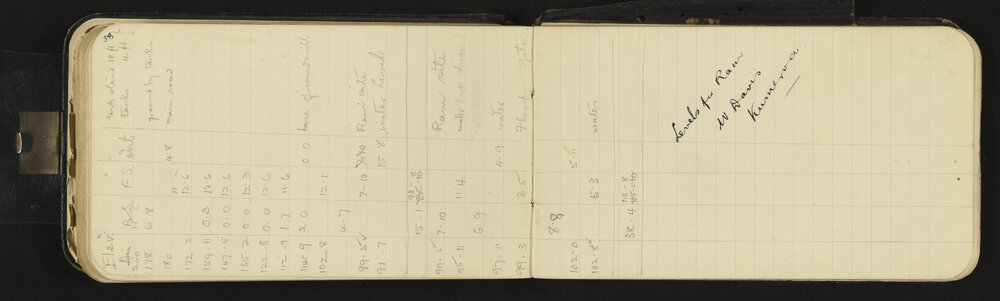 Elev. B.S. F.S. Int
200 tank stand 18 ft
178 6 8 tanks 4 ft
ground by tanks
180 4-8 main road
172-2 12-6
159-11 0-3 12-6
147-5 0-0 12-6
135-2 0-0 12-3
122-8 0-0 12-6
112-9 1 7 11-6
114-9 2 0 0 0 base of windmill
102-8 12-1
4-7
99-5 7-10 Ram site
91-7 15-8 water level
15-1 93-8
99-5 7-10 Ram site
95-11 11-4 water (up stream
6-9
97-11 4-9 water
99-3 3 5 Flood gate
88
102-0 5-11
102-8 5-3 water
38-4 113-8
Levels for Ram
W Davis
Kumeroa